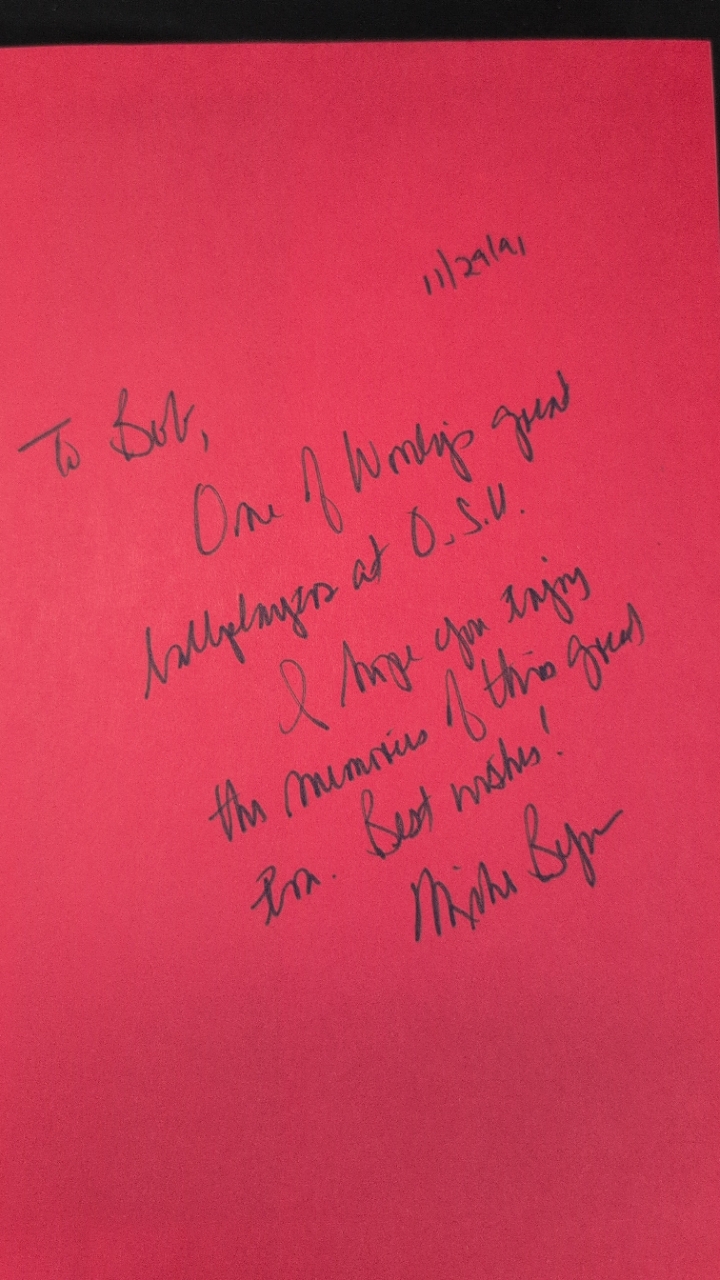 11/29/91
To Bob,
One of Woody's great
ballplayers at O.S.U.
I hope you enjoy
the memories of this great
Era. Best wishes!
Mike